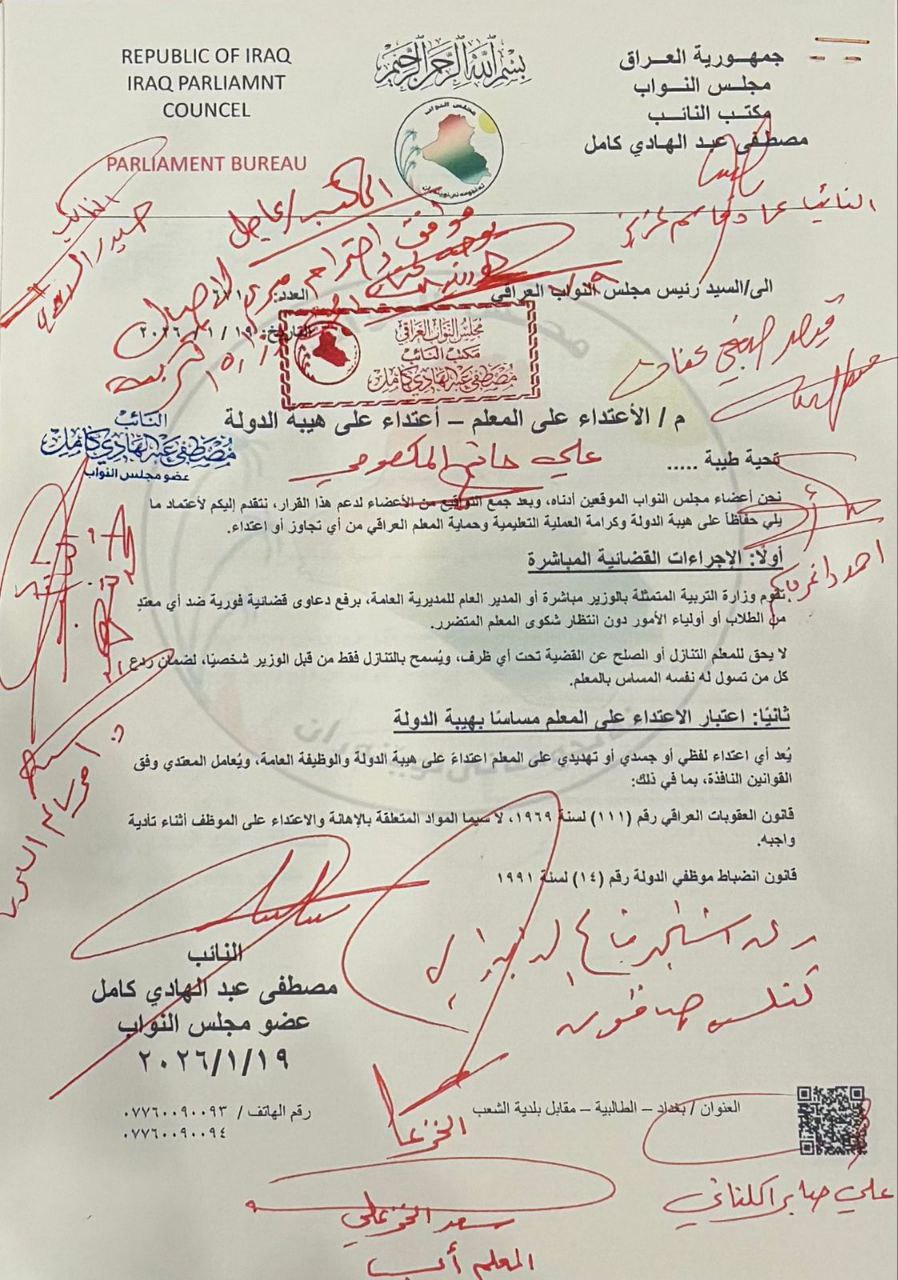 REPUBLIC OF IRAQ
IRAQ PARLIAMNT
COUNCEL
PARLIAMENT BUREAU
بسم الله الرحمن الرحيم
مجلس النواب
جمهورية العراق
مجلس النواب
مكتب النائب
مصطفى عبد الهادي كامل
النائب
الى/السيد رئيس مجلس النواب العراقي
العدد:
التاريخ: ١٩ / ١ / ٢٠٢٦
مجلس النواب العراقي
مكتب النائب
مصطفى عبد الهادي كامل
م / الأعتداء على المعلم – أعتداء على هيبة الدولة
النائب
مصطفى عبد الهادي كامل
عضو مجلس النواب
تحية طيبة .....
علي
نحن أعضاء مجلس النواب الموقعين أدناه، وبعد جمع التواقيع من الأعضاء لدعم هذا القرار، نتقدم إليكم لأعتماد ما
يلي حفاظاً على هيبة الدولة وكرامة العملية التعليمية وحماية المعلم العراقي من أي تجاوز أو اعتداء.
أولًا: الإجراءات القضائية المباشرة
تقوم وزارة التربية المتمثلة بالوزير مباشرة أو المدير العام للمديرية العامة، برفع دعاوى قضائية فورية ضد أي معتدٍ
من الطلاب أو أولياء الأمور دون انتظار شكوى المعلم المتضرر.
لا يحق للمعلم التنازل أو الصلح عن القضية تحت أي ظرف، ويُسمح بالتنازل فقط من قبل الوزير شخصيًا، لضمان ردع
كل من تسول له نفسه المساس بالمعلم.
ثانيًا: اعتبار الاعتداء على المعلم مساسًا بهيبة الدولة
يُعد أي اعتداء لفظي أو جسدي أو تهديدي على المعلم اعتداءً على هيبة الدولة والوظيفة العامة، ويُعامل المعتدي وفق
القوانين النافذة، بما في ذلك:
قانون العقوبات العراقي رقم (١١١) لسنة ١٩٦٩، لا سيما المواد المتعلقة بالإهانة والاعتداء على الموظف أثناء تأدية
واجبه.
قانون انضباط موظفي الدولة رقم (١٤) لسنة ١٩٩١
النائب
مصطفى عبد الهادي كامل
عضو مجلس النواب
٢٠٢٦/١/١٩
العنوان / بغداد – الطالبية – مقابل بلدية الشعب
رقم الهاتف / ٠٧٧٦٠٠٩٠٠٩٣
٠٧٧٦٠٠٩٠٠٩٤
سعد الخزعلي